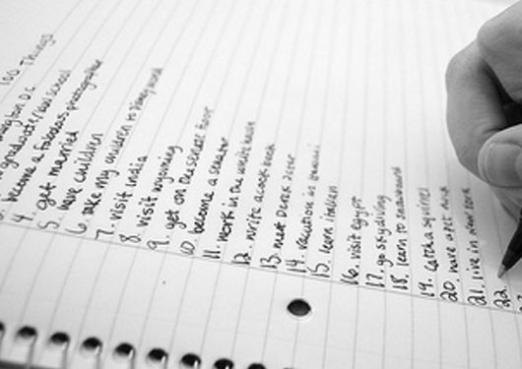 100 Things
graduate law school
4. become a fabulous photographer
5. get married
6. have children
take my children to Disney world
7. visit India
8. visit wyoming
9. get on the senate floor
10. become a senator
11. work in the white house
12. write a cook book
13. meet Derek Jeter
14. vacation in
15. learn italian
16. visit egypt
17. go skydiving
18. learn to snowboard
19. catch a squirrel
20. have a pet
21. live in new york
22.